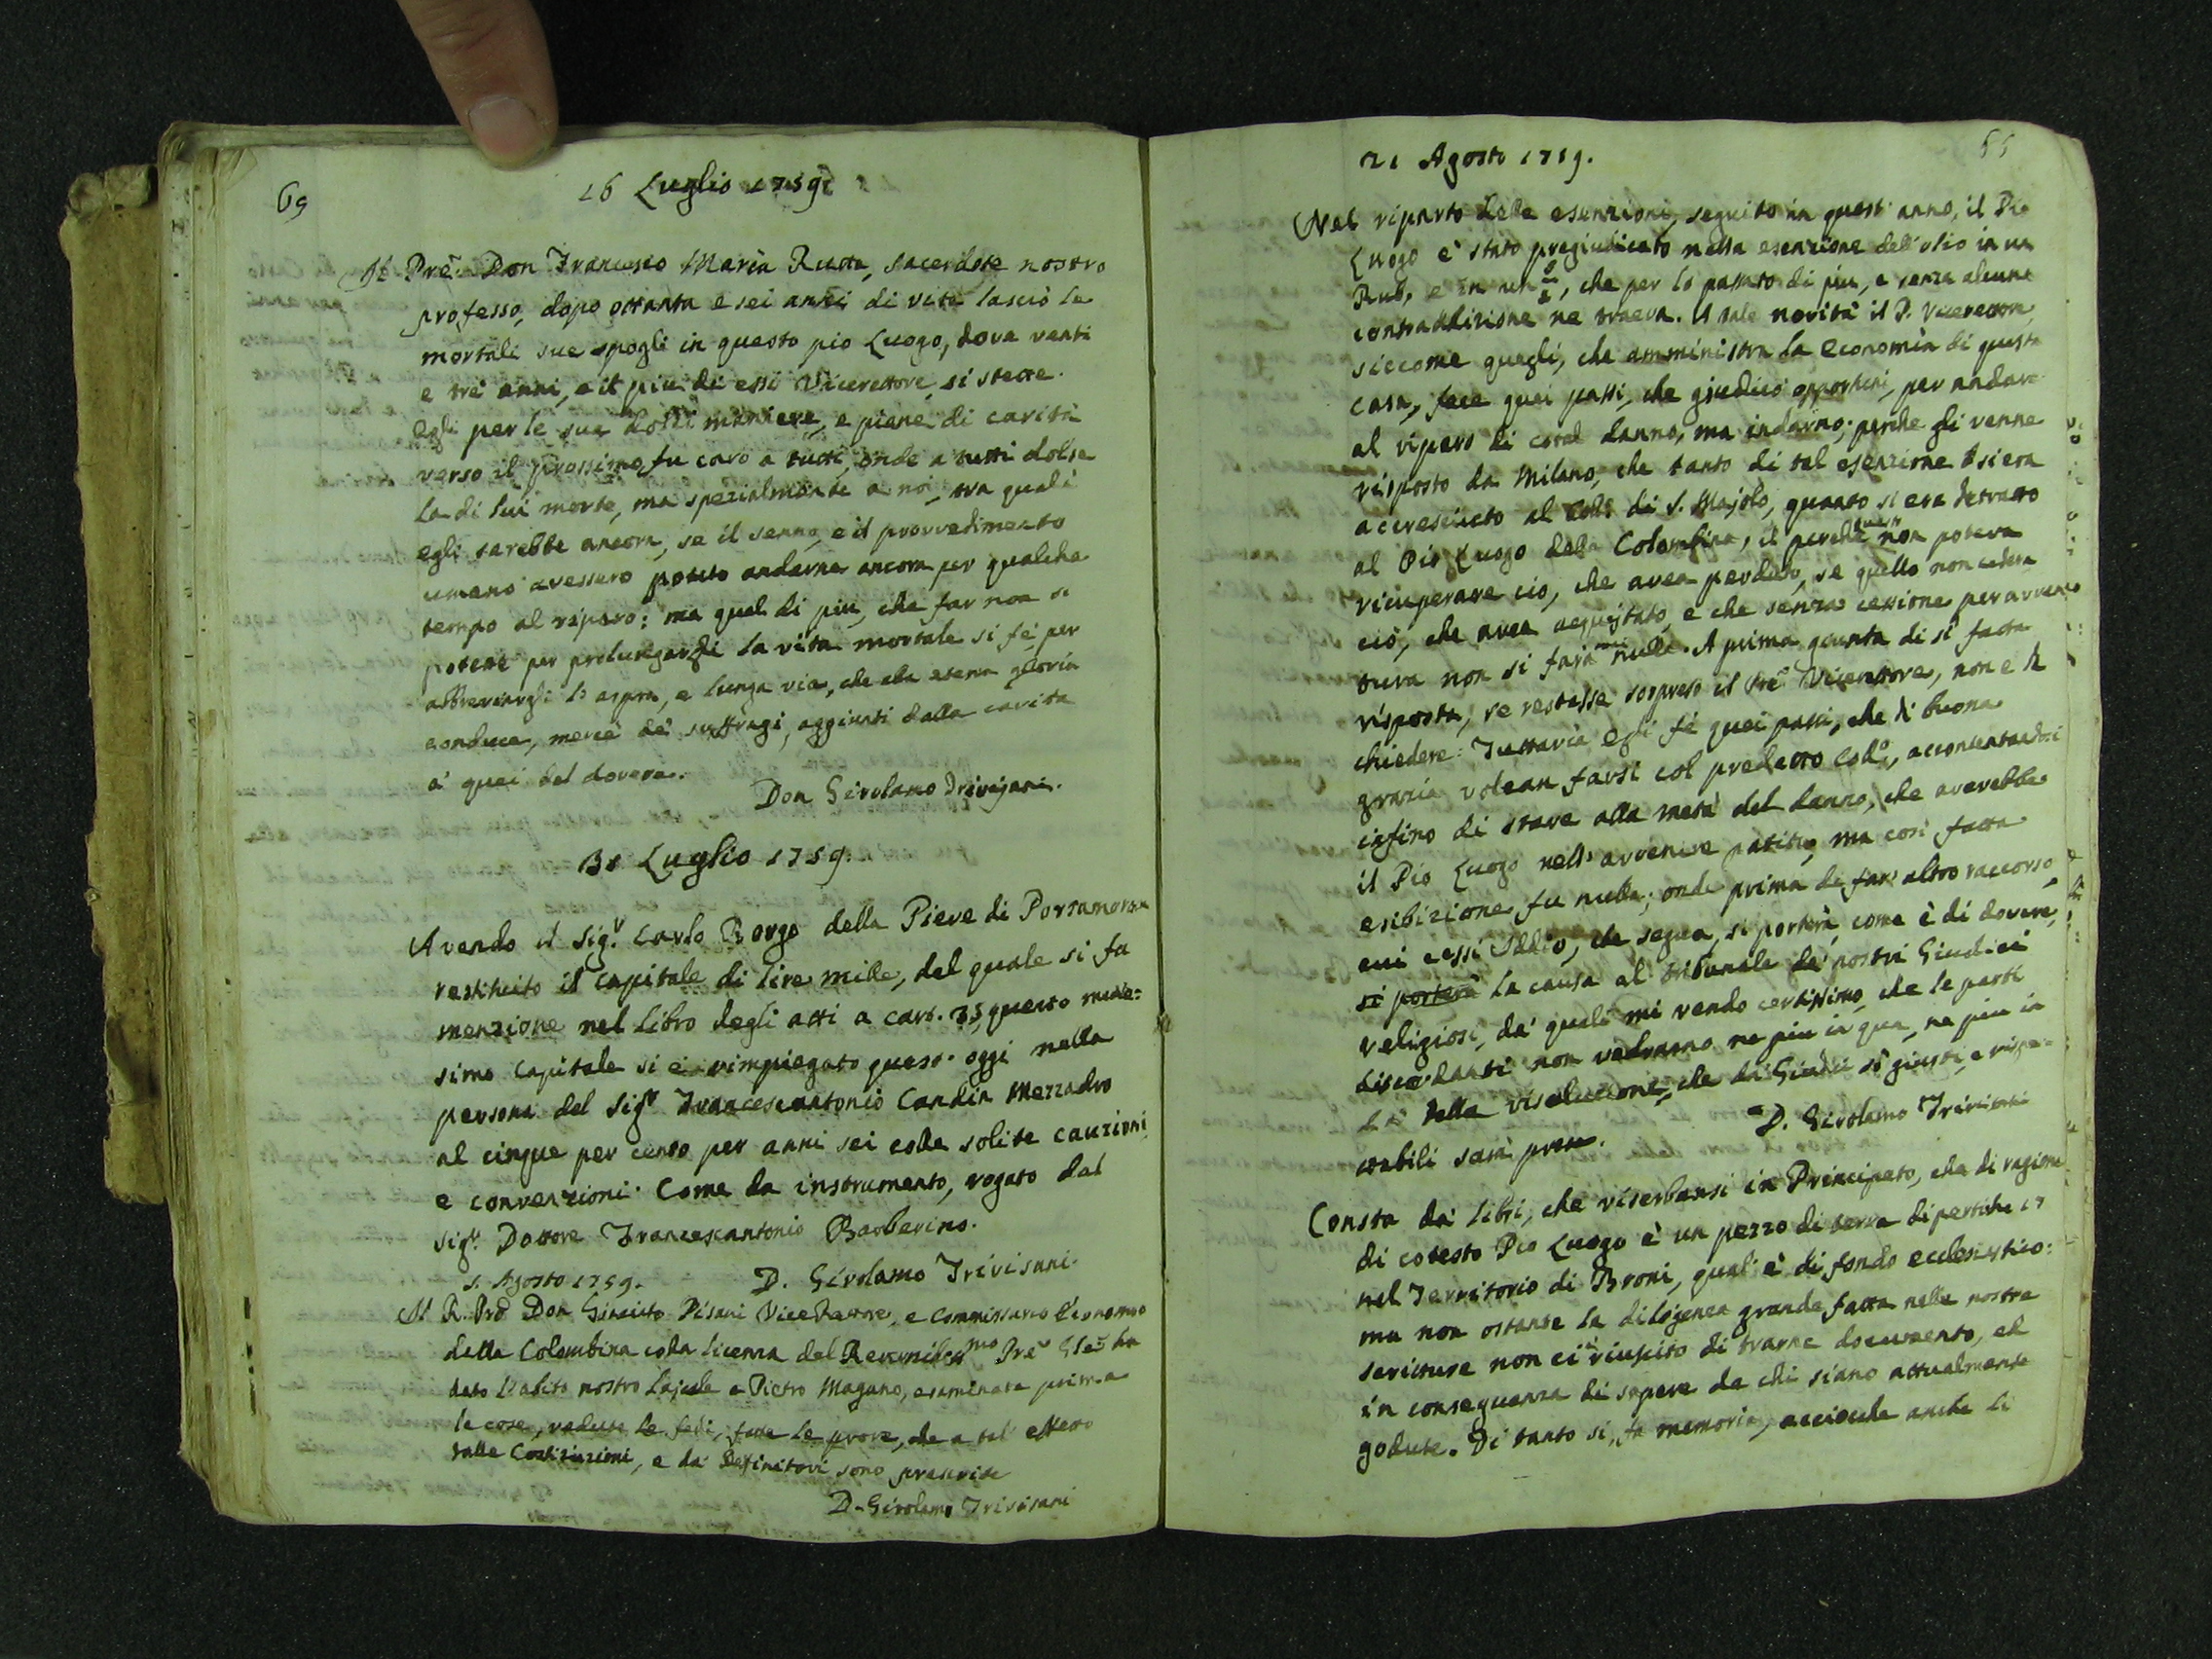 69
16 Luglio 1759
Il Prē Don Francesco Maria Rutta, sacerdote nostro
professo, dopo ottanta e sei anni di vita lasciò le
mortali sue spogli in questo pio Luogo, dove venti
e tre anni, e il piu di essi Vicerettore, si stette.
Egli per le sue dolci maniere, e piene di carità
verso il prossimo fu caro a tutti, onde a tutti dolse
la di lui morte, ma spezialmente a noi, tra quali
egli sarebbe ancora, se il senno, e il provvedimento
umano avessero potuto andarne ancora per qualche
tempo al riparo: ma quel di piu, che far non si
potette per prolungargli la vita mortale si fé per
abbreviargli la aspra, e lunga via, che alla eterna gloria
conduce, mercè de' suffragi, aggiunti dalla carità
a' quei del dovere.
Don Girolamo Trivisani.
31 Luglio 1759.
Avendo il Sig.r Carlo Borgo della Pieve di Portamorone
restituito il capitale di lire mille, del quale si fa
menzione nel Libro degli atti a cart. 35, questo mede=
simo Capitale si è rimpiegato quest' oggi nella
persona del Sig.r Francescantonio Candia Mezzadro
al cinque per cento per anni sei colle solite cauzioni
e convenzioni. Come da instrumento, rogato dal
Sig.r Dottore Francescantonio Barberino.
D. Girolamo Trivisani.
1. Agosto 1759.
Il R. Prē Don Giacinto Pisani ViceRettore, e Commissario Economo
della Colombina colla licenza del Reverendissmo Prē Gle ha
dato l'abito nostro Lajcale a Pietro Magano, esaminate prima
le cose, vedute le fedi, fatte le prove, che a tal effetto
dalle Costituzioni, e da' Definitori sono prescritte
D. Girolamo Trivisani
65
21 Agosto 1759.
Nel riparto delle esenzioni, seguito in quest' anno, il Pio
Luogo è stato pregiudicato nella esenzione dell'olio in un
Rub, e in un, che per lo passato di piu, e senza alcuna
contraddizione ne traeva. A tale novità il P. Vicerettore,
siccome quegli, che amministra la economia di questa
casa, fece quei passi, che giudicò opportuni, per andare
al riparo di cotal danno, ma indarno; perche gli venne
risposto da Milano, che tanto di tal esenzione si era
accresciuto al Coll.o di S. Majolo, quanto si era detratto
al Pio Luogo della Colombina, il perche questi non poteva
ricuperare ciò, che avea perduto, se quello non cedeva
ciò, che avea acquistato, e che senza cessione per avven=
tura non si farà mai nulla. A prima giunta di sì fatta
risposta, se restasse sorpreso il Prē Vicerettore, non è da
chiedere: Tuttavia egli fé quei passi, che di buona
grazia volean farsi col predetto Coll.o, accontentandosi
infino di stare alla metà del danno, che averebbe
il Pio Luogo nell' avvenire patito, ma così fatta
esibizione fu nulla; onde prima de far' altro raccorso,
cui cessi Iddio, che segua, si porterà, come è di dovere,
si porterà la causa al tribunale de' nostri Giudici
religiosi, da' quali mi rendo certissimo, che le parti
discordanti non vedranno ne piu in qua, ne piu in
là della risoluzione, che da Giudici sì giusti, e rispe=
ttabili sarà presa.
D. Girolamo Trivisani
Consta da' libri, che riserbansi in Principato, che di ragione
di cotesto Pio Luogo è un pezzo di terra di pertiche 17
nel Territorio di Broni, qual' è di fondo ecclesiastico:
ma non ostante la diligenza grande fatta nelle nostre
scritture non ci è riuscito di trarne documento, ed
in conseguenza di sapere da chi siano attualmente
godute. Di tanto si fa memoria, acciocche anche li